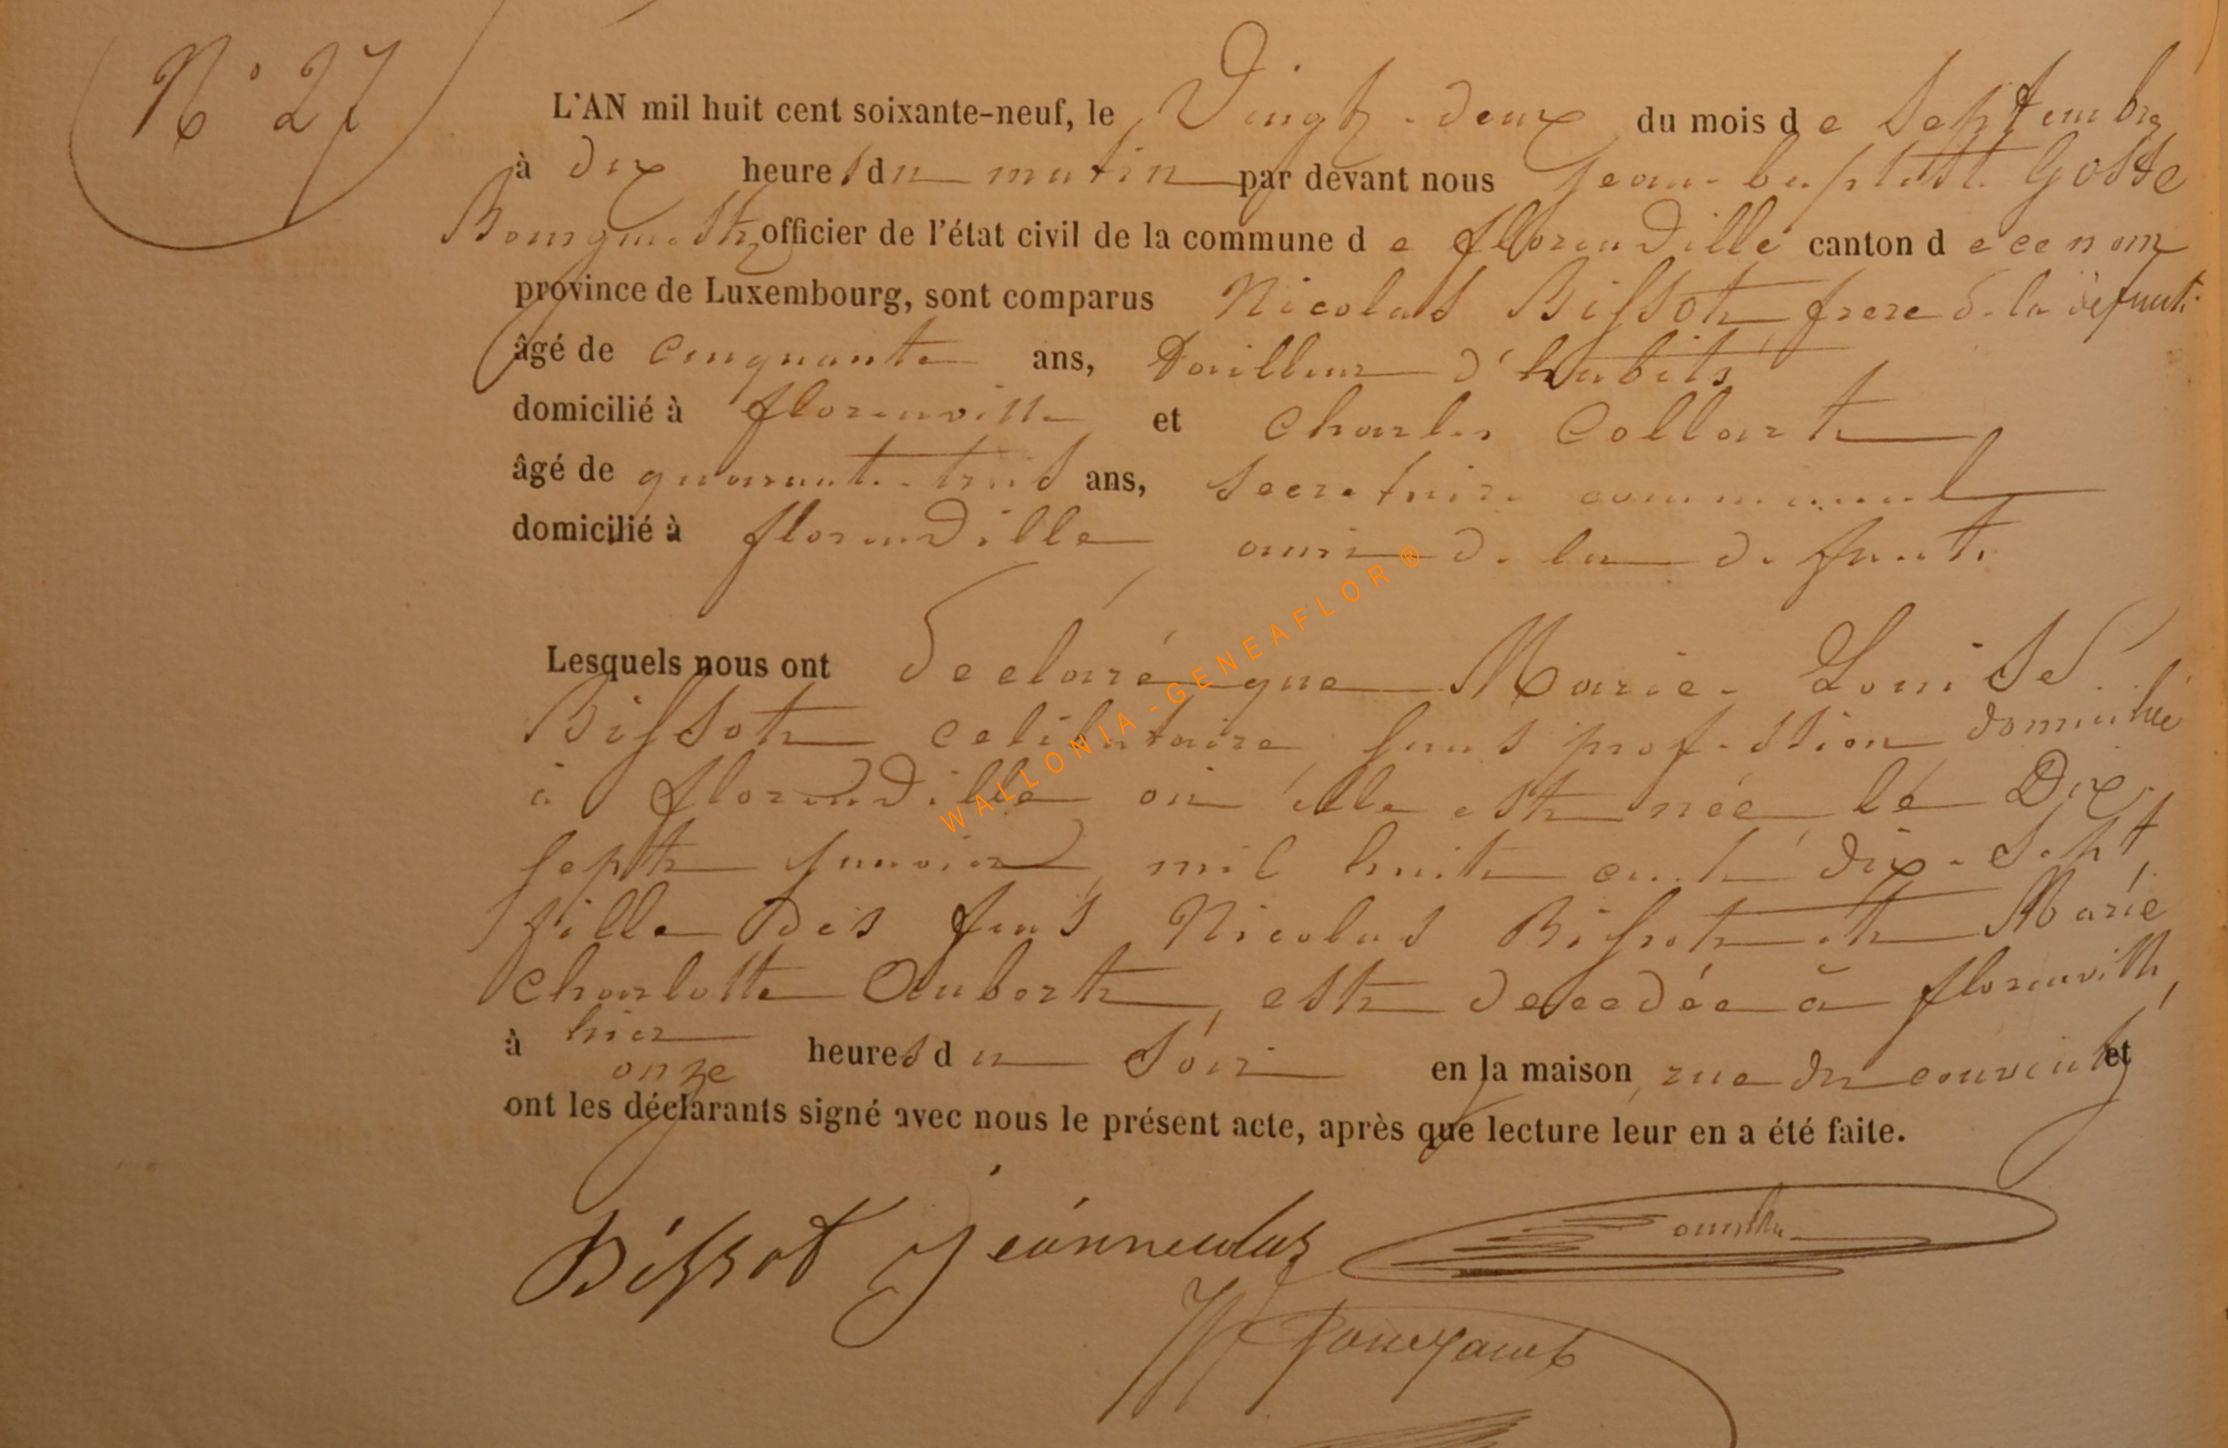 N° 27
L'AN mil huit cent soixante-neuf, le Vingt-deux du mois de Septembre
à dix heures du matin par devant nous Jean baptiste Gosse
Bourgmestre officier de l'état civil de la commune de florenville canton de ce nom
province de Luxembourg, sont comparus Nicolas Bissot frere de la défunte
âgé de cinquante ans, tailleur d'habits
domicilié à florenville et Charles Collart
âgé de quarante-trois ans, secretaire communal
domicilié à florenville ami de la defunte
Lesquels nous ont déclaré que Marie-Louise
Bissot celibataire, sans profession domiciliée
à florenville où elle est née le Dix
sept janvier mil huit cent dix-sept,
fille des feus Nicolas Bissot et Marie
Charlotte Aubert, est decedée à florenville,
à hier
onze heures du Soir en la maison, rue du couvent et
ont les déclarants signé avec nous le présent acte, après que lecture leur en a été faite.
Bissot Jeannicolas
WALLONIA-GENEAFLOR ®